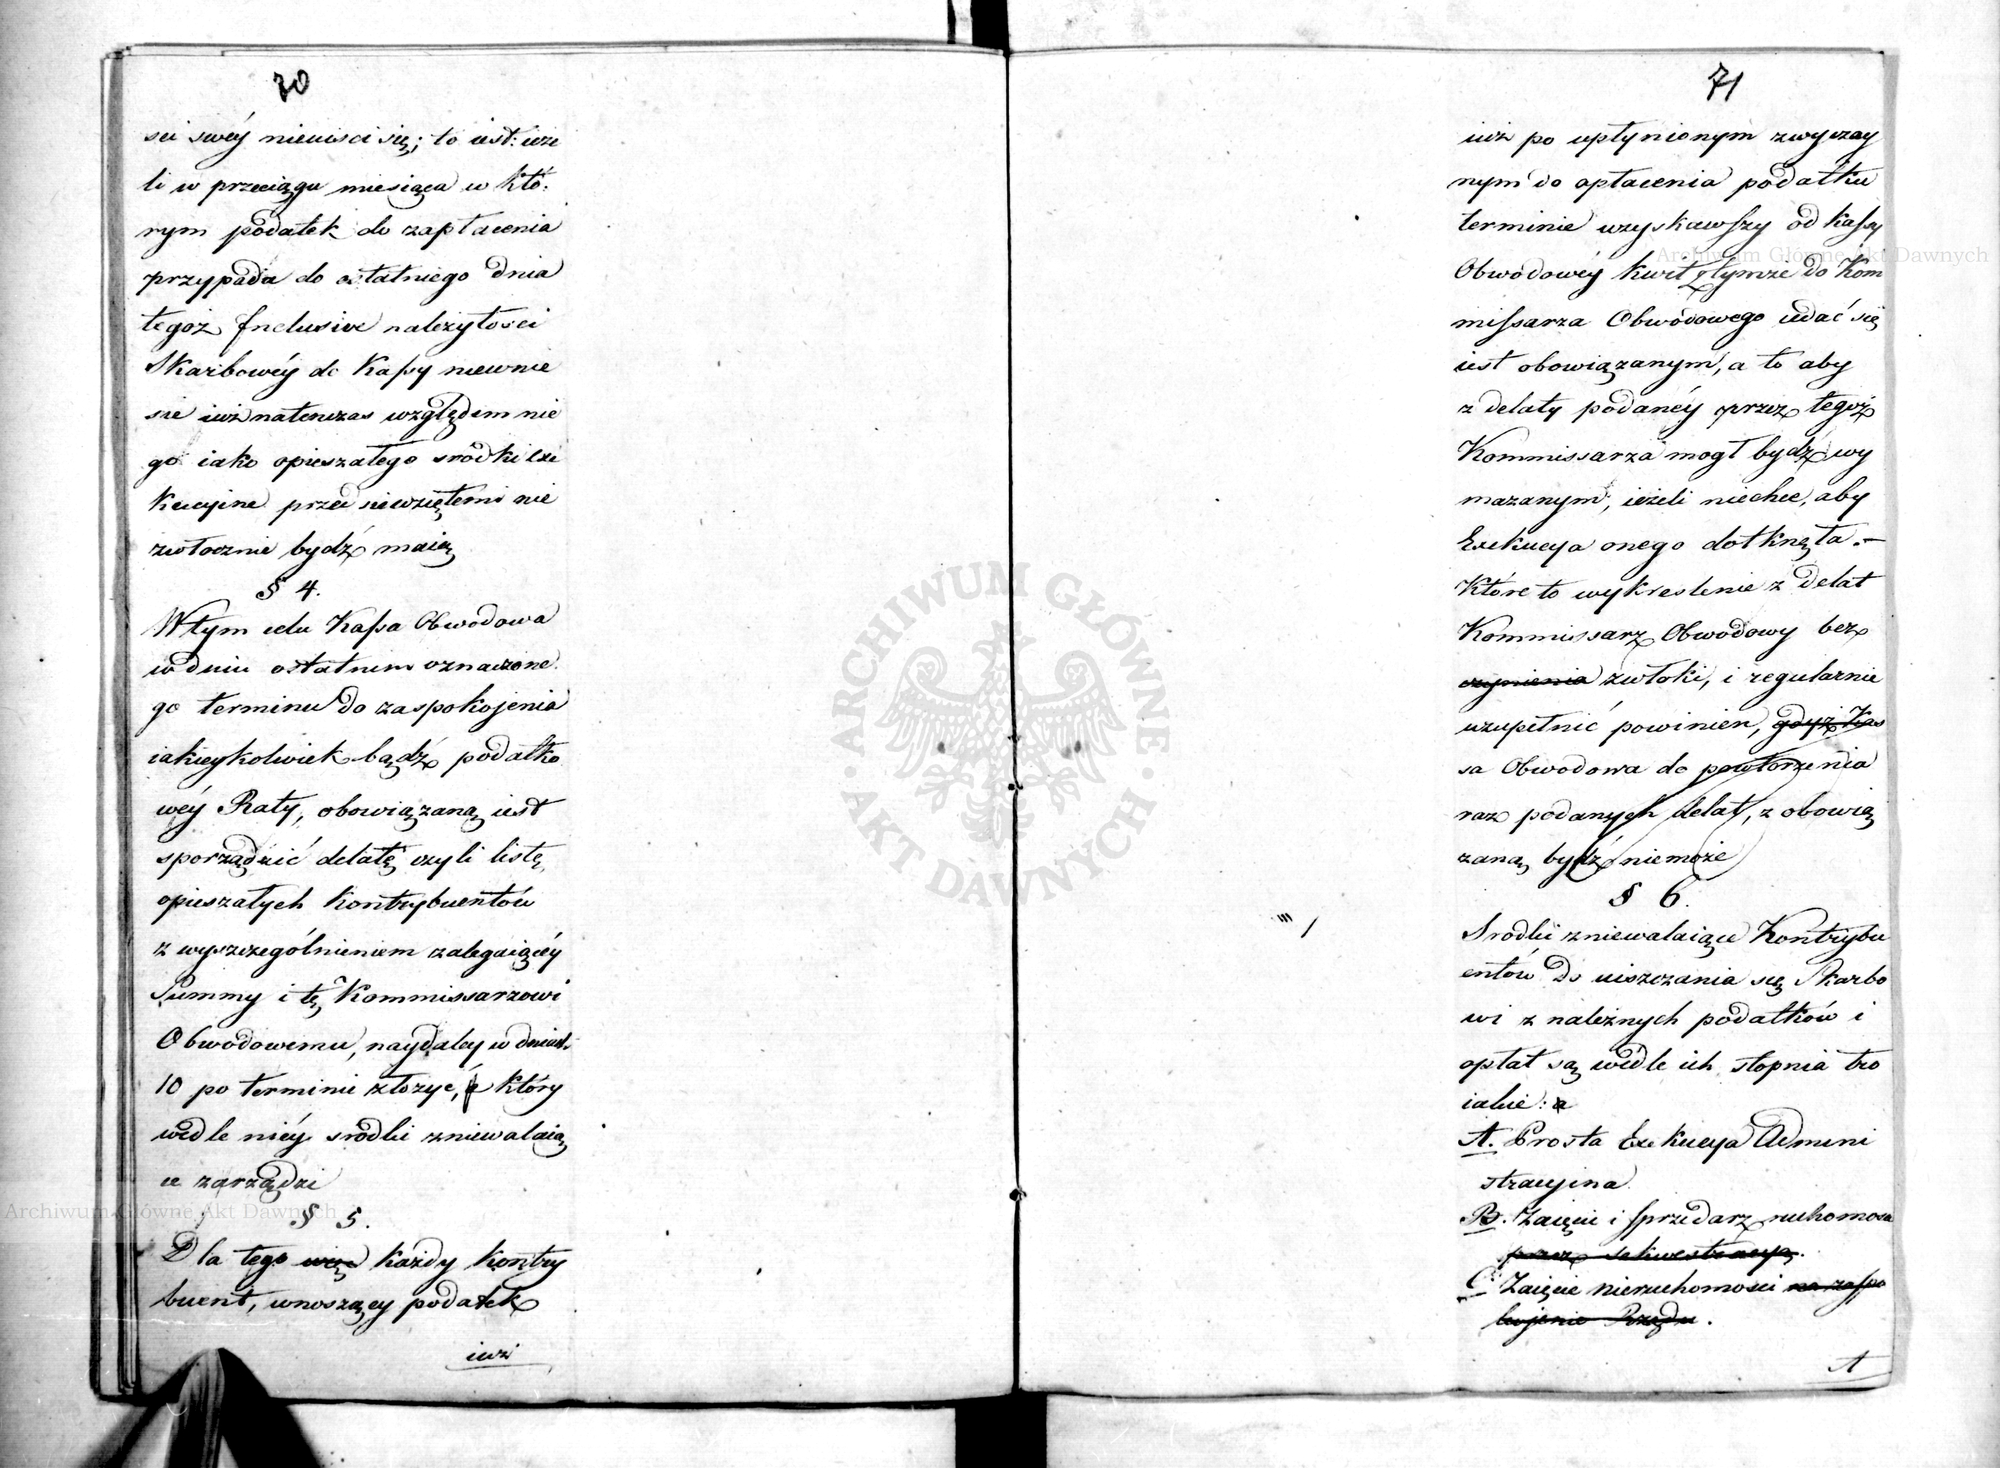 70
sci swéy nieuisci się; to iest: ieże
li w przeciągu miesiąca w któ:
rym podatek do zapłacenia
przypada do ostatniego dnia
tegoż Inclusive należytości
Skarbowéy do Kassy niewnie
sie iuż natenczas względem nie
go iako opieszałego srodki exe
kucyine przedsiewziętemi nie
zwłocznie bydź maią
§ 4.
W tym celu Kassa Obwodowa
w dniu ostatnim oznaczone
go terminu do zaspokojenia
iakieykolwiek bądź podatko
wéy Raty, obowiązaną iest
sporządzić delatę czyli listę
opieszałych Kontrybuentów
z wyszczególnieniem zalegaiącéy
Summy i tę Kommissarzowi
Obwodowemu, naydaley w dniach
10 po terminie złożyc, który
wedle niéy srodki zniewalaią
ce zarządzi
§ 5.
Dla tego więc każdy kontry
buent, wnoszący podatek
iuż
71
iuż po upłynionym zwyczay
nym do opłacenia podatku
terminie uzyskawszy od kassy
Obwodowéy kwit z tymże do Kom
missarza Obwodowego udać się
iest obowiązanym, a to aby
z delaty podanéy przez tegoż
Kommissarza mogł bydź wy
mazanym, ieżeli niechce, aby
Exekucya onego dotknęła.—
Które to wykreslenie z delat
Kommissarz Obwodowy bez
czynienia zwłoki, i regularnie
uzupełnić powinien, gdyż Kas
sa Obwodowa do powtorzenia
raz podanych delat, z obowią
zaną bydź niemoże
§ 6.
Srodki zniewalaiące Kontrybu
entów do uiszczania się Skarbo
wi z należnych podatków i
opłat są wedle ich stopnia tro
iakie: a
A. Prosta Exekucya Admini
stracyina
B. Zaięcie i sprzedarz ruchomosci
przez sekwestracyą.
C. Zaięcie nieruchomosci na zaspo
kojenie Rządu.
A
ARCHIWUM GŁÓWNE · AKT DAWNYCH ·
Archiwum Główne Akt Dawnych
Archiwum Główne Akt Dawnych